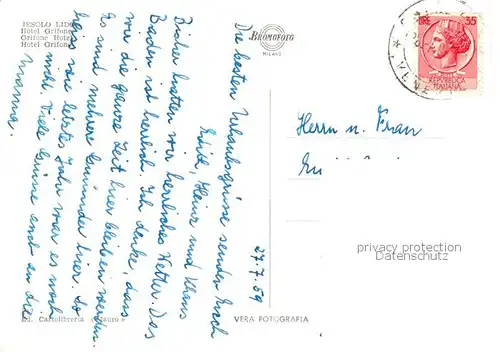 JESOLO LIDO
Hôtel Grifone
Grifone Hotel
Hotel Grifone
BROMOFOTO
MILANO
LIRE 35
REPVBBLICA
ITALIANA
VENE
27.7.69
Die besten Urlaubsgrüsse senden Euch
Edith, Heinz und Klaus
Bisher hatten wir herrliches Wetter. Das
Baden ist herrlich. Ich denke, dass
wir die ganze Zeit hier bleiben werden.
Es sind mehrere Gmünder hier. So
heiss wie letztes Jahr war es noch
nicht. Viele Grüsse auch an die
Mamma.
Herrn u. Frau
privacy protection
Datenschutz
Ed. Cartolibreria
VERA FOTOGRAFIA